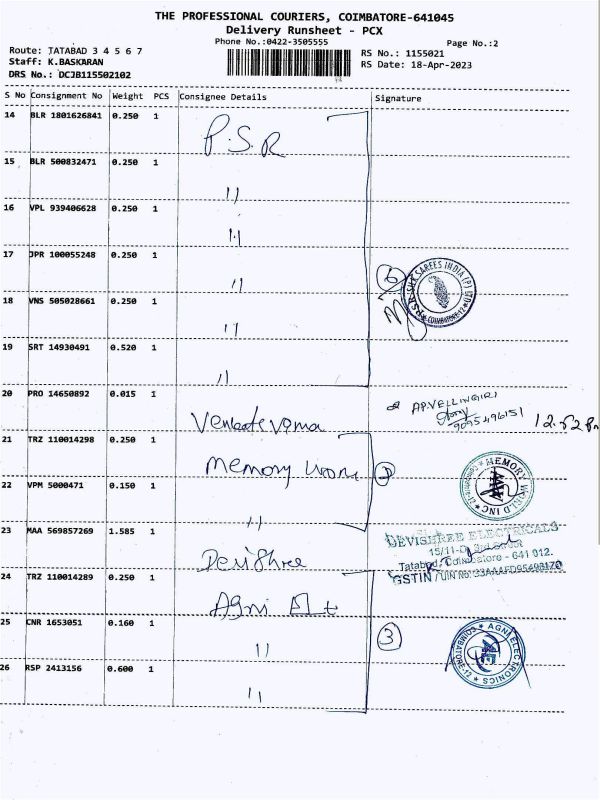 THE PROFESSIONAL COURIERS, COIMBATORE-641045
Delivery Runsheet - PCX
Phone No.:0422-3505555
Page No.:2
Route: TATABAD 3 4 5 6 7
RS No.: 1155021
Staff: K.BASKARAN
RS Date: 18-Apr-2023
DRS No.: DCJB115502102
S No Consignment No Weight PCS Consignee Details Signature
14 BLR 1801626841 0.250 1 P.S.R
15 BLR 500832471 0.250 1 "
16 VPL 939406628 0.250 1 "
17 JPR 100055248 0.250 1 "
6
PSR SILK SAREES INDIA (P) LTD
COIMBATORE-12
18 VNS 505028661 0.250 1 "
19 SRT 14930491 0.520 1 "
20 PRO 14650892 0.015 1
AP.VELLINGIRI
9095496151
12.52 Pm
21 TRZ 110014298 0.250 1 memory
2
MEMORY WORLD INC
22 VPM 5000471 0.150 1 "
23 MAA 569857269 1.585 1
DEVISHREE ELECTRICALS
Tatabad, Coimbatore - 641 012.
24 TRZ 110014289 0.250 1 Agni
25 CNR 1653051 0.160 1 "
3
AGNI ELECTRONICS
COIMBATORE-12
26 RSP 2413156 0.600 1 "